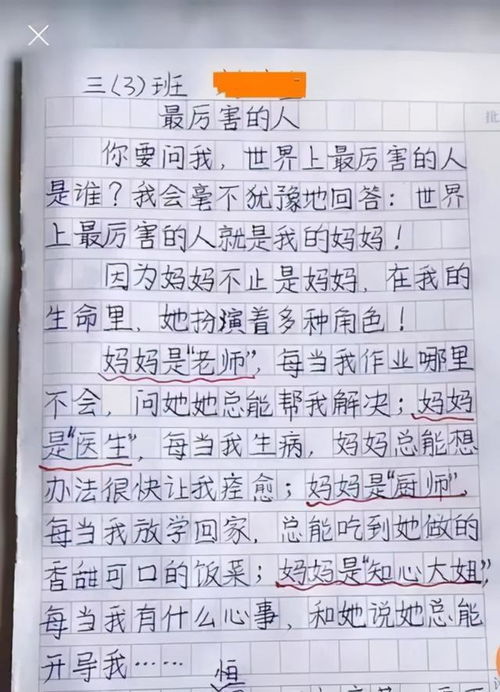 三(3)班
最厉害的人
你要问我,世界上最厉害的人
是谁?我会毫不犹豫地回答:世界
上最厉害的人就是我的妈妈!
因为妈妈不止是妈妈,在我的
生命里,她扮演着多种角色!
妈妈是“老师”,每当我作业哪里
不会,问她她总能帮我解决;妈妈
是“医生”,每当我生病,妈妈总能想
办法很快让我痊愈;妈妈是“厨师”,
每当我放学回家,总能吃到她做的
香甜可口的饭菜;妈妈是“知心大姐”,
每当我有什么心事,和她说她总能
开导我……
恒